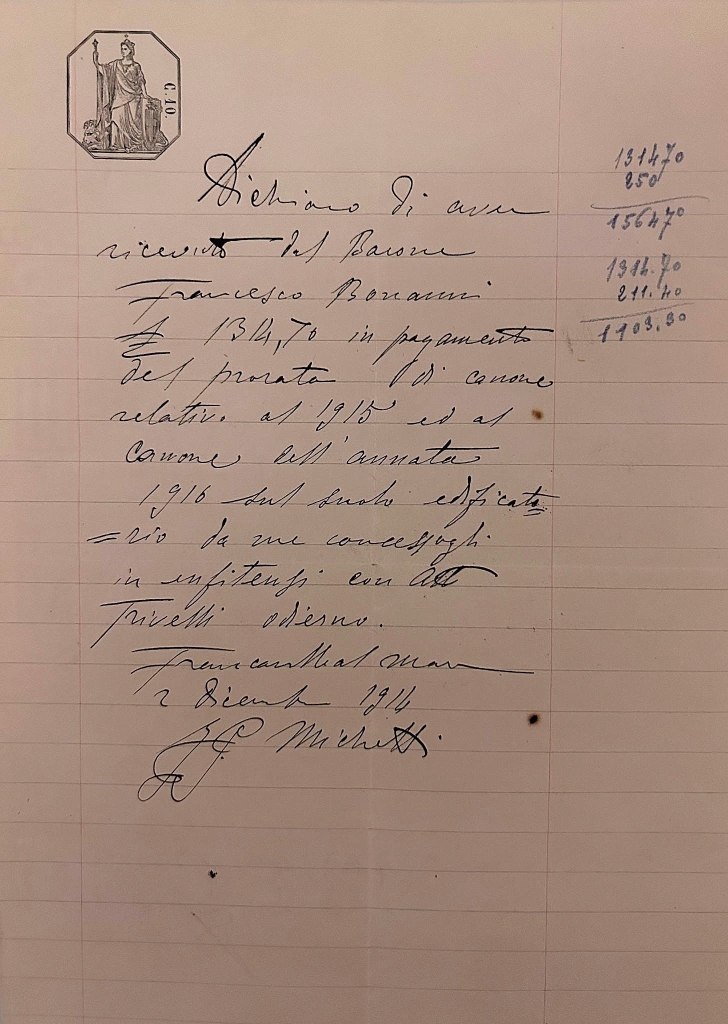 C. 10
Dichiaro di aver
ricevuto dal Barone
Francesco Bonanni
£ 1314,70 in pagamento
del prorata di canone
relativo al 1915 ed al
canone dell'annata
1916 sul suolo edificato
=rio da me concessogli
in enfiteusi con att
Trivelli odierno.
Francavilla al mare
2 dicembre 1914
F. P. Michetti
131470
250
156470
1314.70
211.40
1103.30